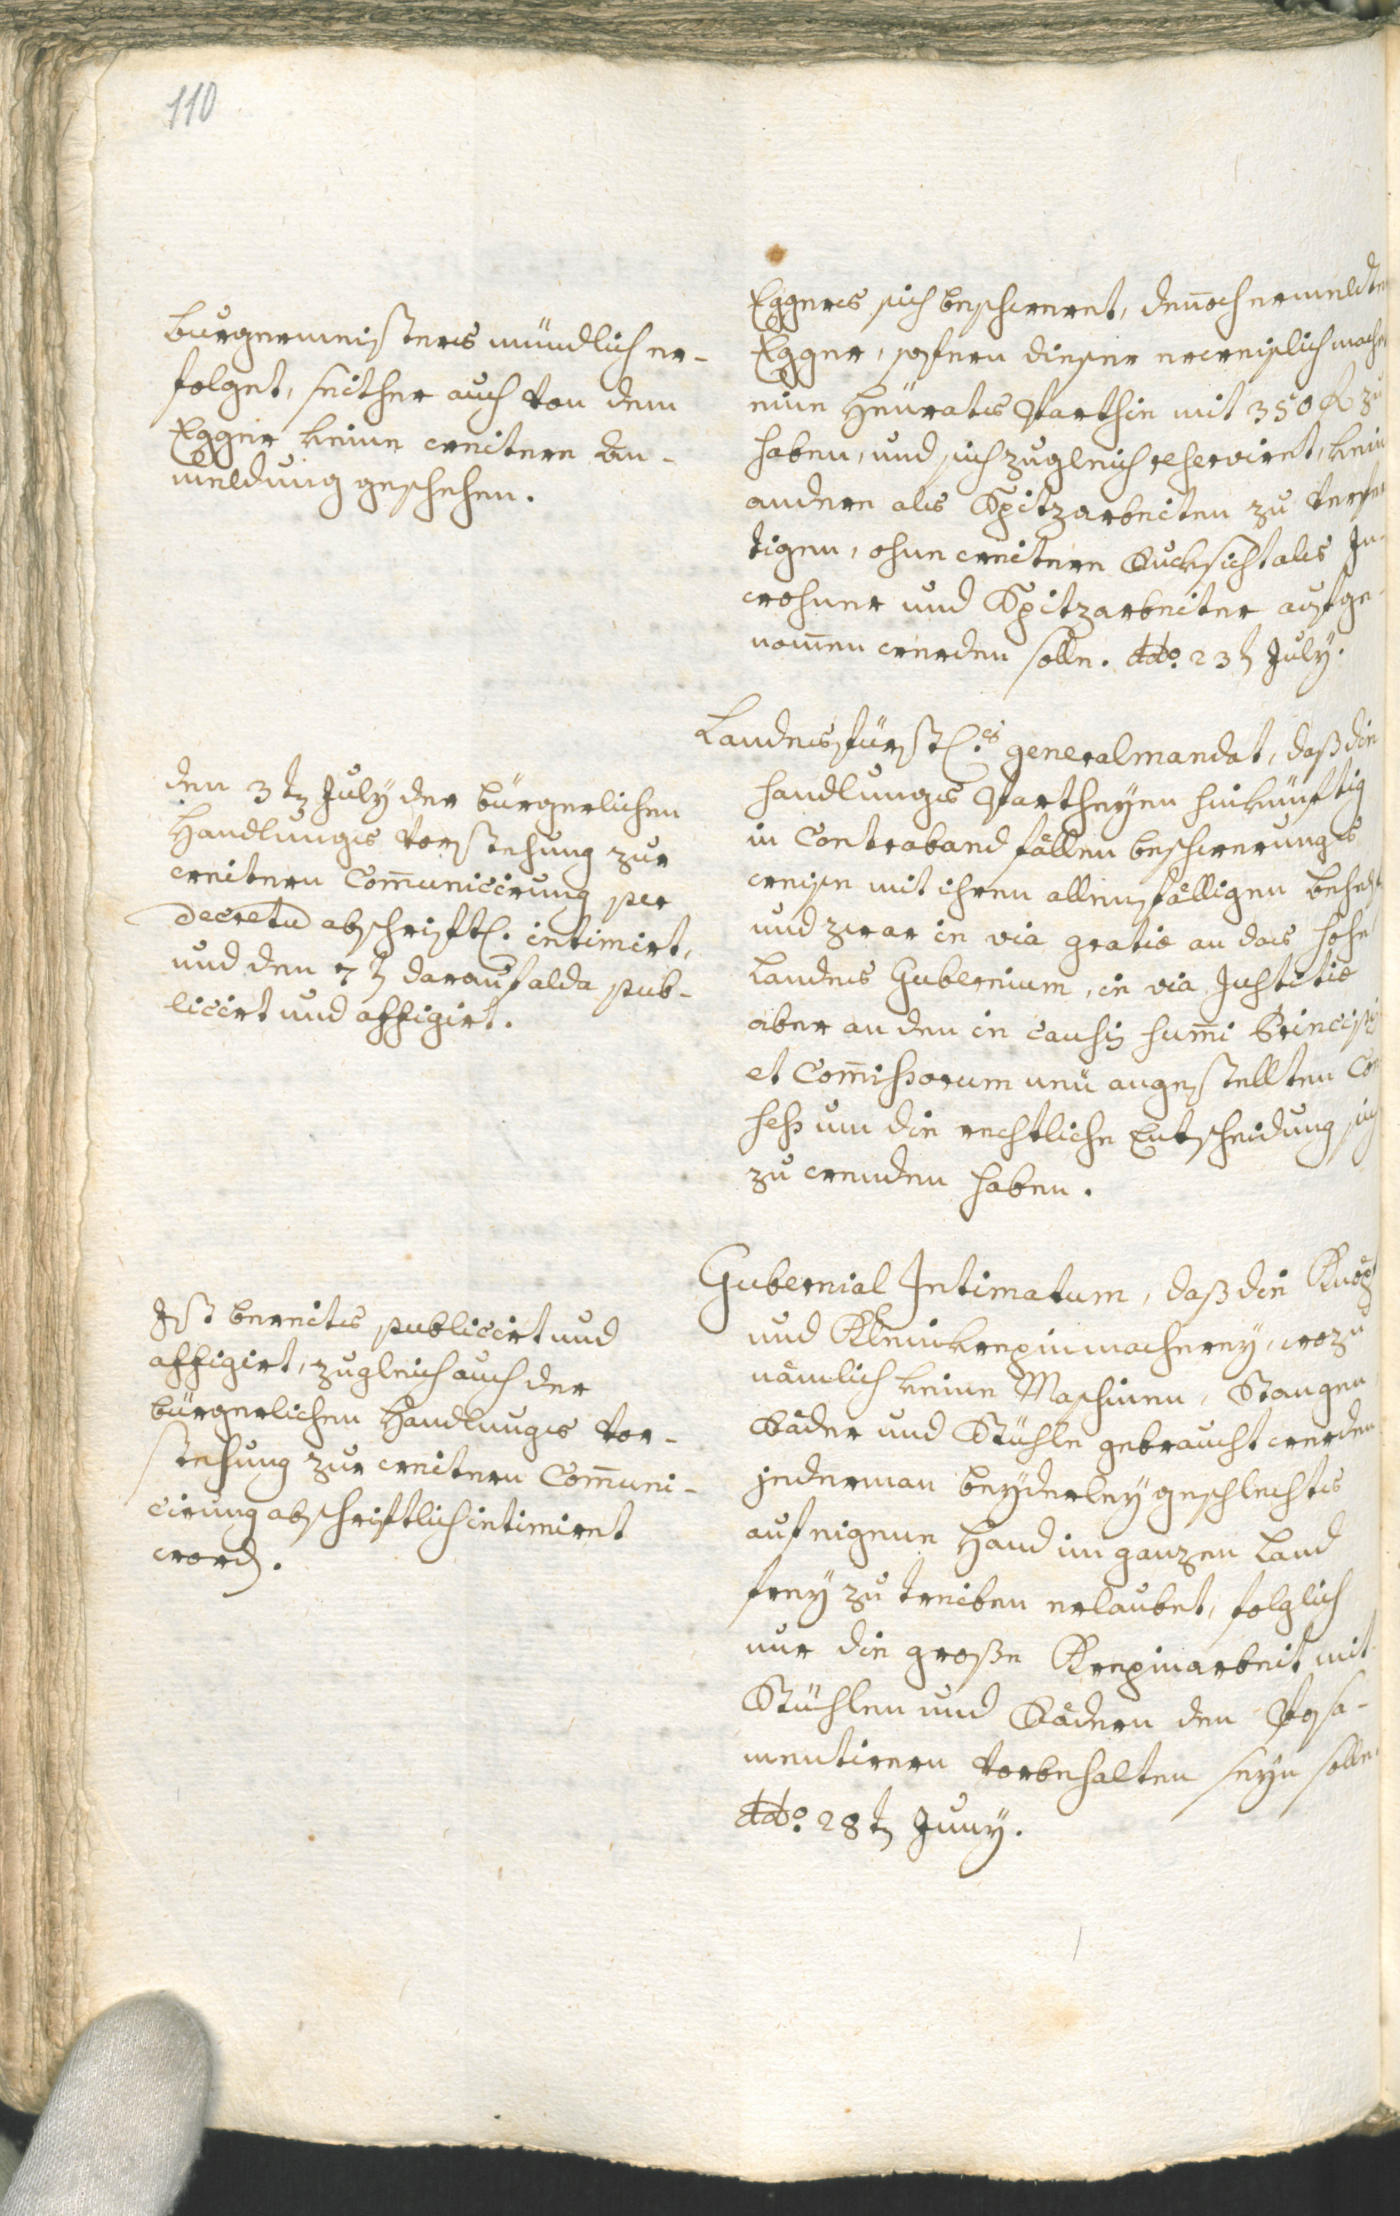 110
burgermeisters mündlich er-
folget, seither auch von dem
Egger keine weitere An-
meldung geschehen.
Eggers sich beschweret, dennoch ermeldte
Egger, sofern dieser erweislich mache
eine Heürats Parthie mit 350 f zu
haben, und sich zugleich reserviret, kein
andere als Spitzarbeiten zu verfer
tigen, ohne weitere Rucksicht als In-
wohner und Spitzarbeiter aufge-
nom̅en werden solle. ddo. 23t July.
den 3tn July der bürgerlichen
Handlungs Vorstehung zur
weitern Com̅unicirung per
decretu abschriftl. intimirt,
und den 7t darauf alda pub-
licirt und affigirt.
Landesfürstl.es generalmandat, daß die
handlungs Partheyen hinkünftig
in Contraband fällen beschwerungs
weise mit ihren allensfälligen behelf
und zwar in via gratiæ an das hohe
Landes Gubernium, in via Justitiæ
aber an den in causis sum̅i Principis
et Com̅issorum neü angestellten Con
sess um die rechtliche Entscheidung sich
zu wenden haben.
Ist bereits publicirt und
affigirt, zugleich auch der
bürgerlichen Handlungs Vor-
stehung zur weitern Com̅uni-
cirung abschriftlich intimiret
word.
Gubernial Intimatum, daß die Knöpf
und Kleinkrepinmacherey, wozu
nämlich keine Maschinen, Stangen
Räder und Stühle gebraucht werden
jederman beyderley geschlechts
auf eigene Hand im ganzen Land
frey zu treiben erlaubet, folglich
nur die große Krepinarbeit mit
Stühlen und Rädern den Posa-
mentirern vorbehalten seyn solle.
ddo. 28tn Juny.